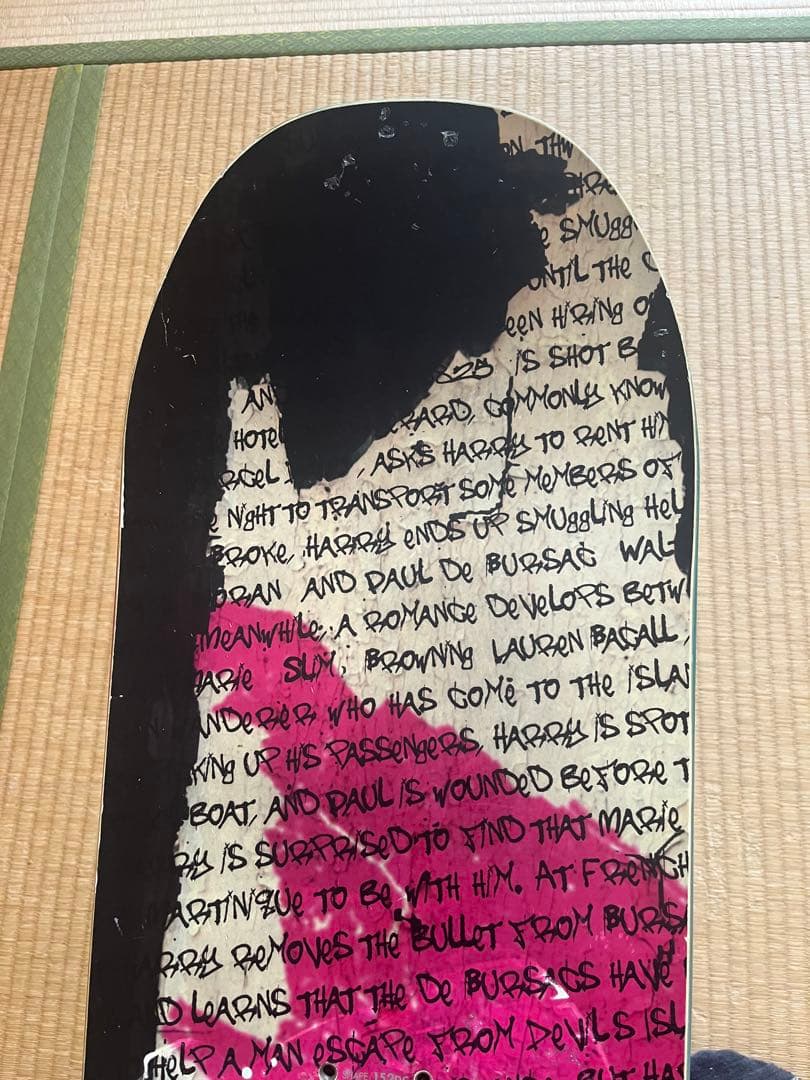 ON THW
SMUgg
UNTIL THE C
EEN HIRING O
IS SHOT B
AN
RARD, COMMONLY KNOW
HOTEL
ASKS HARRY TO RENT HI
RCEL
E NIGHT TO TRANSPORT SOME MEMBERS OF
BROKE, HARRY ENDS UP SMUGGLING HEL
ORAN AND PAUL DE BURSAC WAL
MEANWHILE, A ROMANCE DEVELOPS BETW
ARIE SLIM, BROWNING LAUREN BACALL,
ANDERER WHO HAS COME TO THE ISLA
KING UP HIS PASSENGERS, HARRY IS SPOT
BOAT, AND PAUL IS WOUNDED BEFORE T
RY IS SURPRISED TO FIND THAT MARIE
ARTINIQUE TO BE WITH HIM. AT FRENCH
RRY REMOVES THE BULLET FROM BURSA
D LEARNS THAT THE DE BURSACS HAVE
HELP A MAN ESCAPE FROM DEVILS ISL
BUT HAS